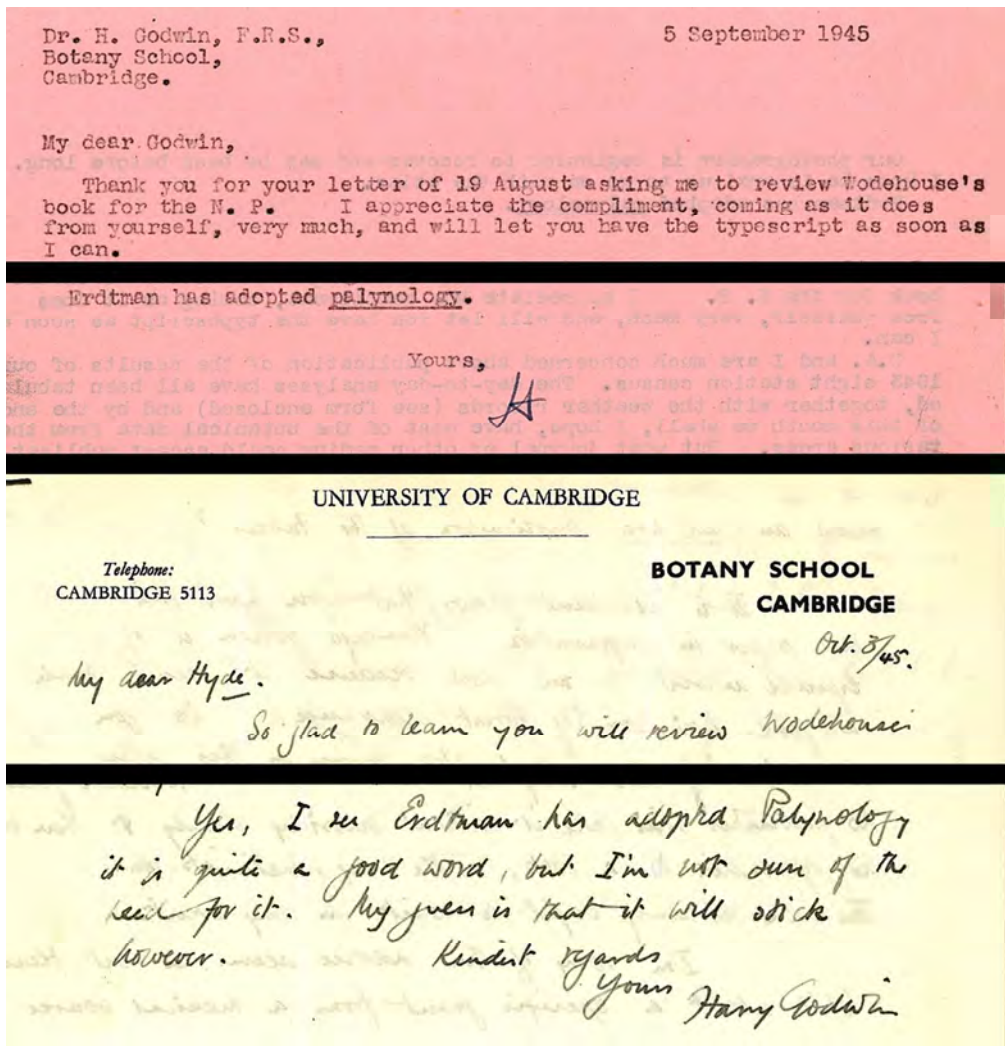 Dr. H. Godwin, F.R.S.,
5 September 1945
Botany School,
Cambridge.
My dear Godwin,
Thank you for your letter of 19 August asking me to review Wodehouse's
book for the N. P. I appreciate the compliment, coming as it does
from yourself, very much, and will let you have the typescript as soon as
I can.
Erdtman has adopted palynology.
Yours,
H
UNIVERSITY OF CAMBRIDGE
Telephone:
CAMBRIDGE 5113
BOTANY SCHOOL
CAMBRIDGE
Oct. 3/45.
My dear Hyde.
So glad to learn you will review Wodehouse's
Yes, I see Erdtman has adopted Palynology
it is quite a good word, but I'm not sure of the
need for it. My guess is that it will stick
however. Kindest regards
Yours
Harry Godwin